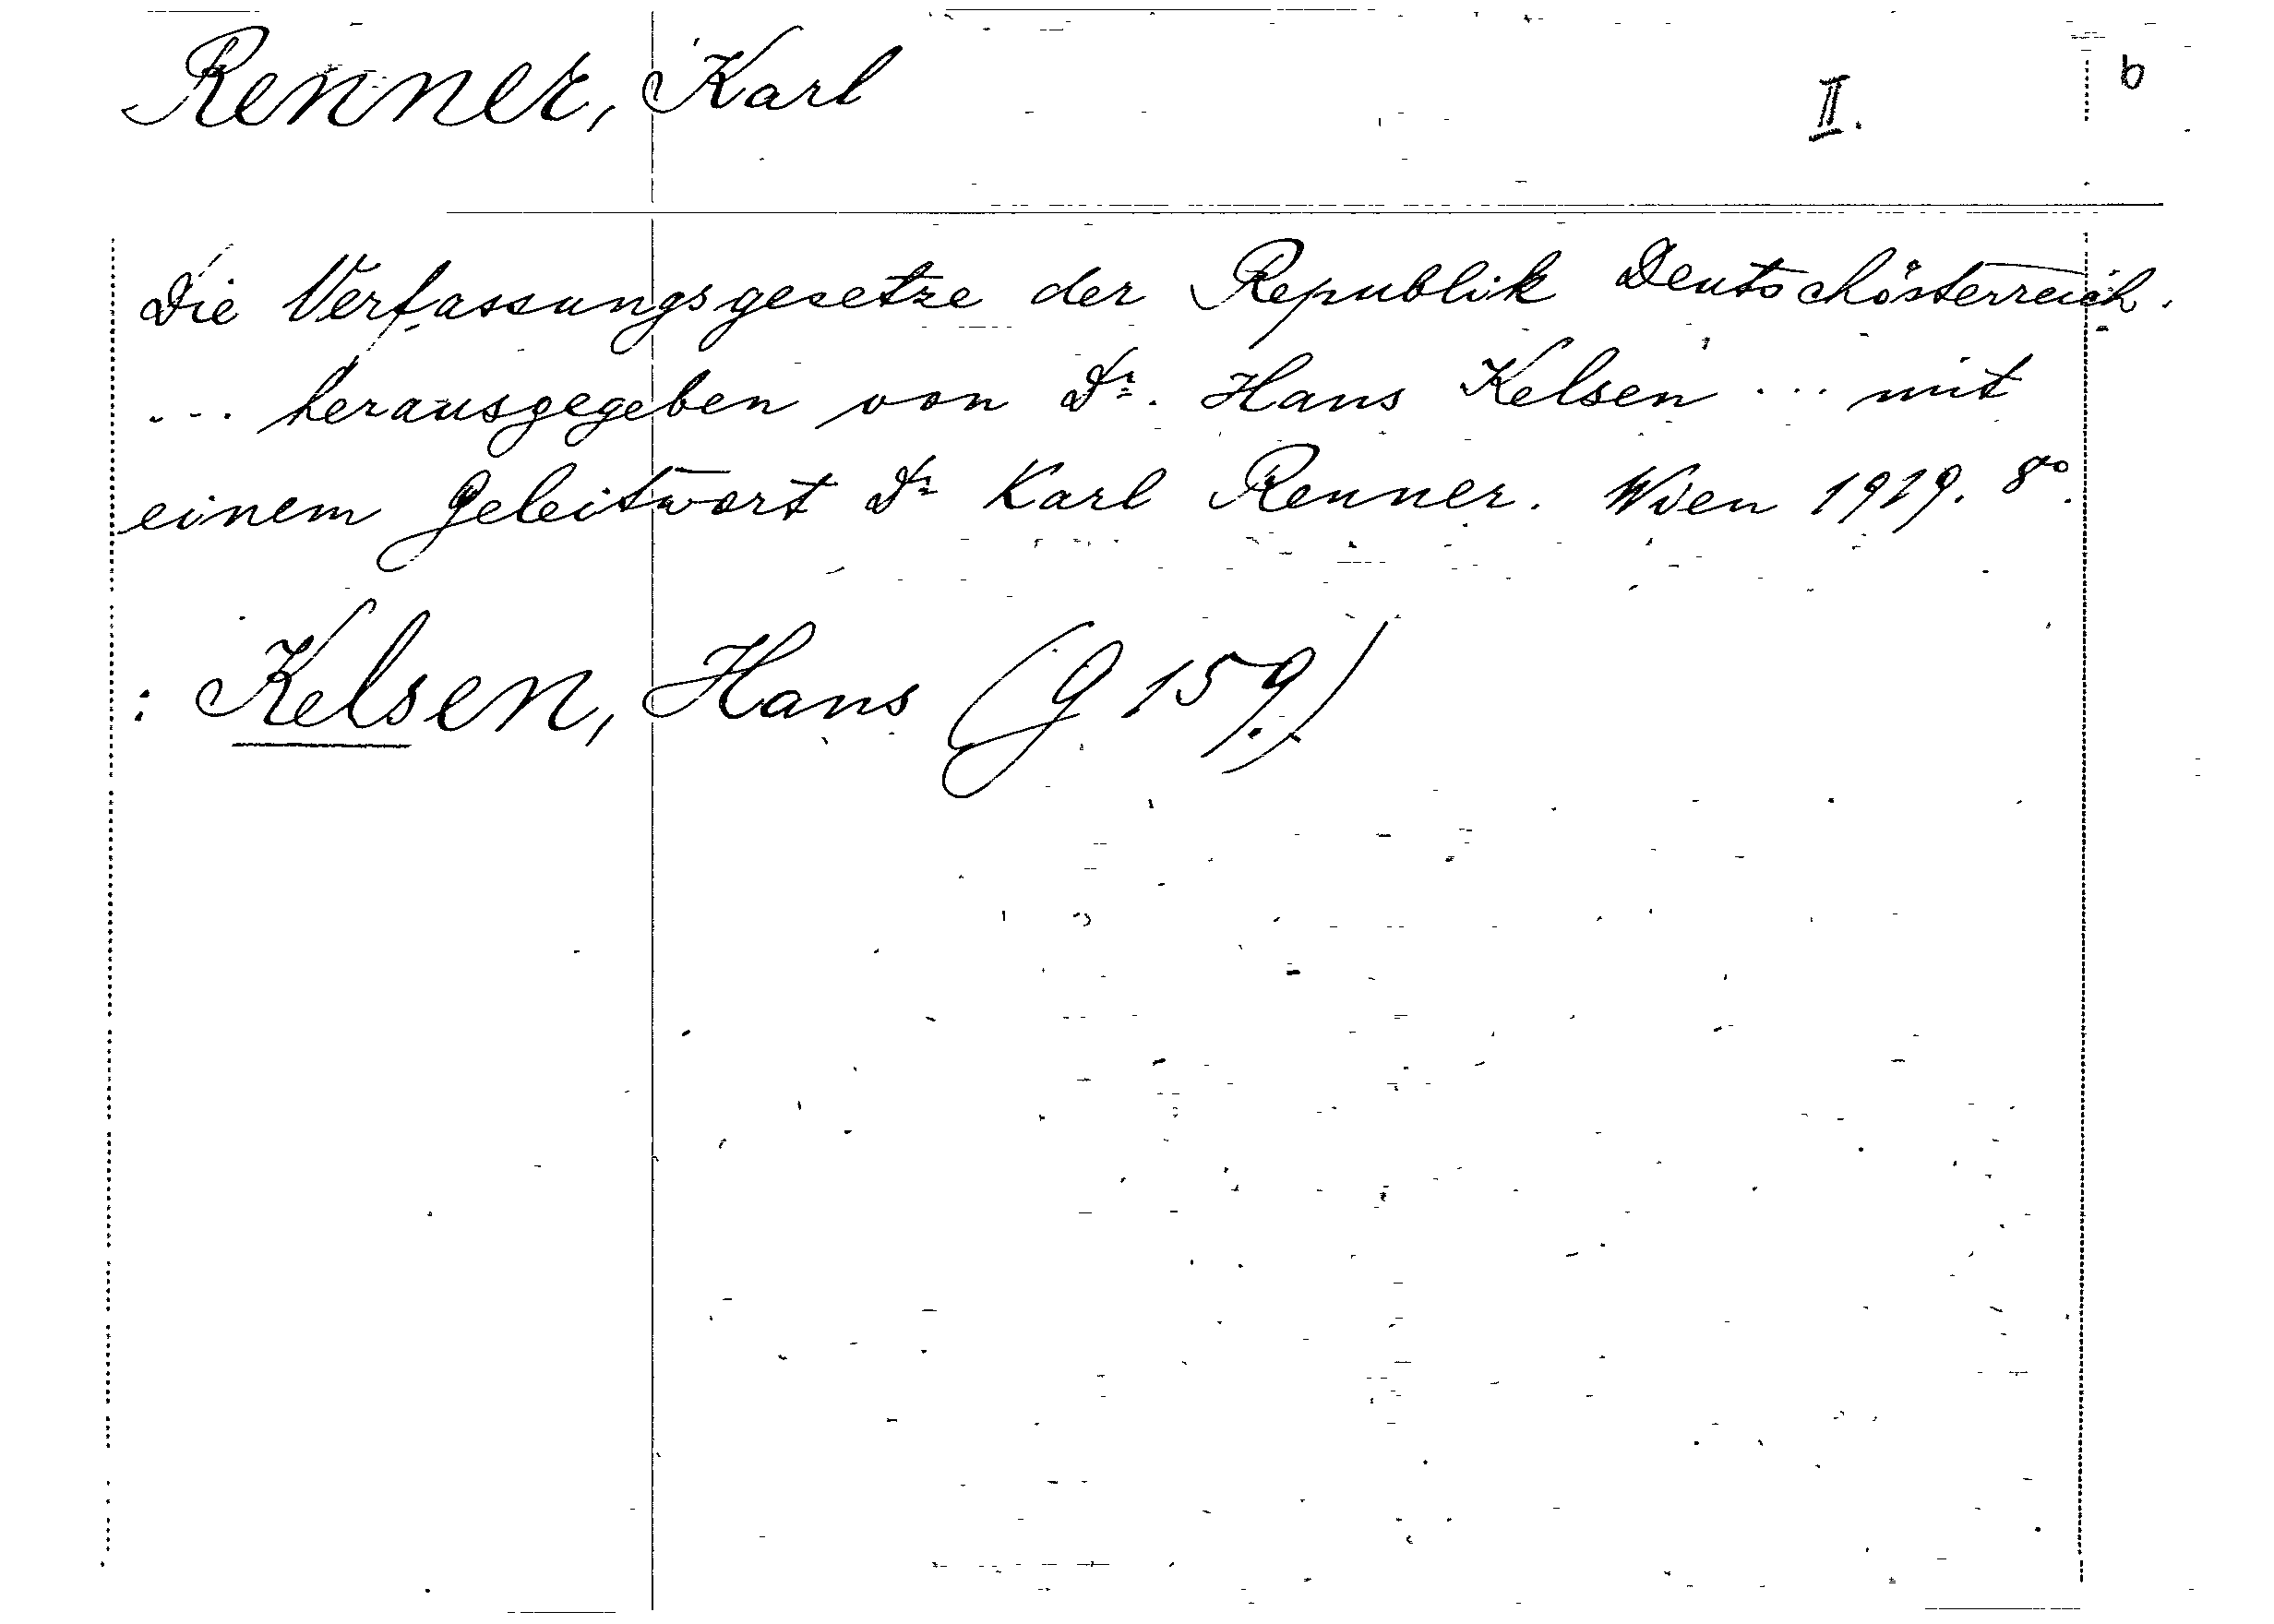 Renner, Karl II. b
Die Verfassungsgesetze der Republik Deutschösterreich.
... herausgegeben von Dr. Hans Kelsen ... mit
einem Geleitwort Dr Karl Renner. Wien 1919. 8°.
: Kelsen, Hans (G 159.)